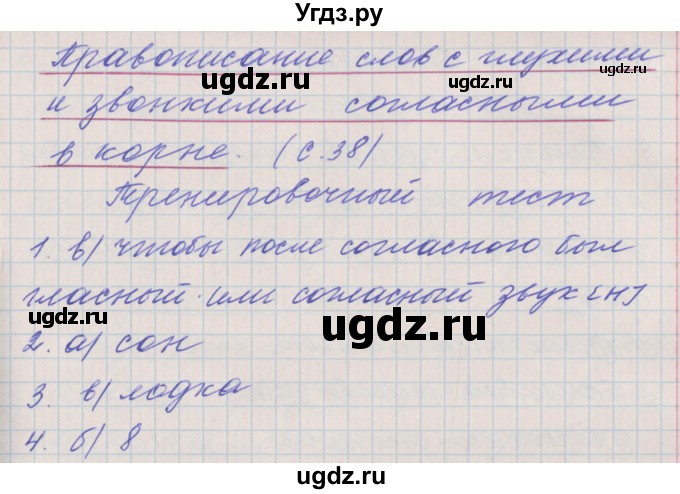 Угдз.ру
Правописание слов с глухими
ugdz.ru ugdz.ru
и звонкими согласными
в корне. (с.38)
ugdz.ru
Тренировочный тест
1. в) чтобы после согласного был
ugdz.ru
гласный (или согласный звук [н])
ugdz.ru ugdz.ru
2. а) сон
3. в) лодка
4. б) 8
ugdz.ru
ugdz.ru